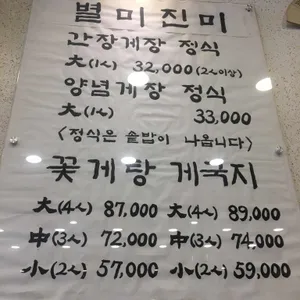 별미진미
간장게장 정식
大(1人) 32,000 (2人이상)
양념게장 정식
大(1人) 33,000
<정식은 솥밥이 나옵니다>
꽃게탕 게국지
大(4人) 87,000 大(4人) 89,000
中(3人) 72,000 中(3人) 74,000
小(2人) 57,000 小(2人) 59,000